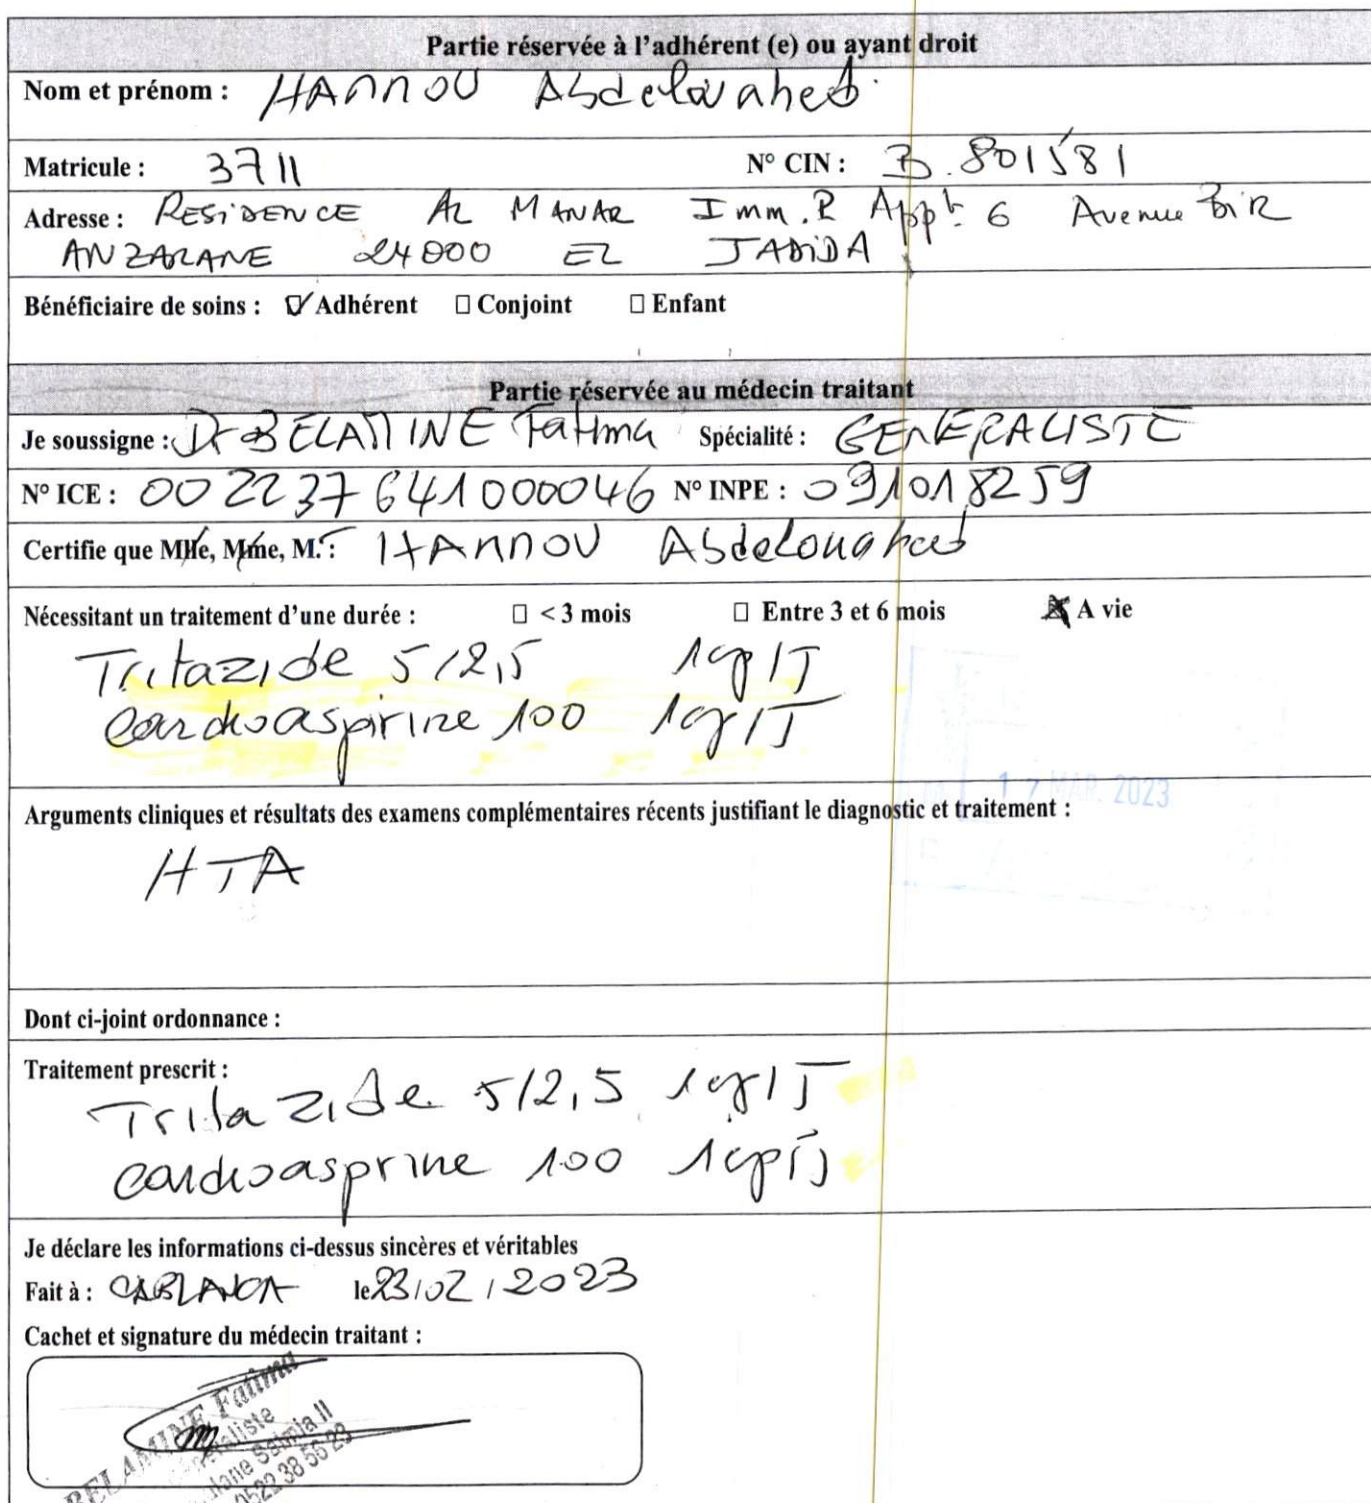 Partie réservée à l'adhérent (e) ou ayant droit
Nom et prénom : HANNOU Abdelouahed
Matricule : 3711 N° CIN : B.801581
Adresse : RESiDENCE AL MANAR Imm.R Appt 6 Avenue BiR
ANZARANE 24000 EL JADiDA
Bénéficiaire de soins : ☑ Adhérent ☐ Conjoint ☐ Enfant
Partie réservée au médecin traitant
Je soussigne : Dr BELAMINE Fatima Spécialité : GENERALISTE
N° ICE : 002237641000046 N° INPE : 091018259
Certifie que Mlle, Mme, M. : HANNOU Abdelouahed
Nécessitant un traitement d'une durée : ☐ < 3 mois ☐ Entre 3 et 6 mois ☒ A vie
Tritazide 5/2,5 1cp/J
Cardioaspirine 100 1cp/J
17 MAR. 2023
Arguments cliniques et résultats des examens complémentaires récents justifiant le diagnostic et traitement :
HTA
Dont ci-joint ordonnance :
Traitement prescrit :
Tritazide 5/2,5 1cp/J
cardioasprine 100 1cp/J
Je déclare les informations ci-dessus sincères et véritables
Fait à : CABLANCA le 23/02/2023
Cachet et signature du médecin traitant :
BELAMINE Fatima
Salmia II
0522 38 56 23